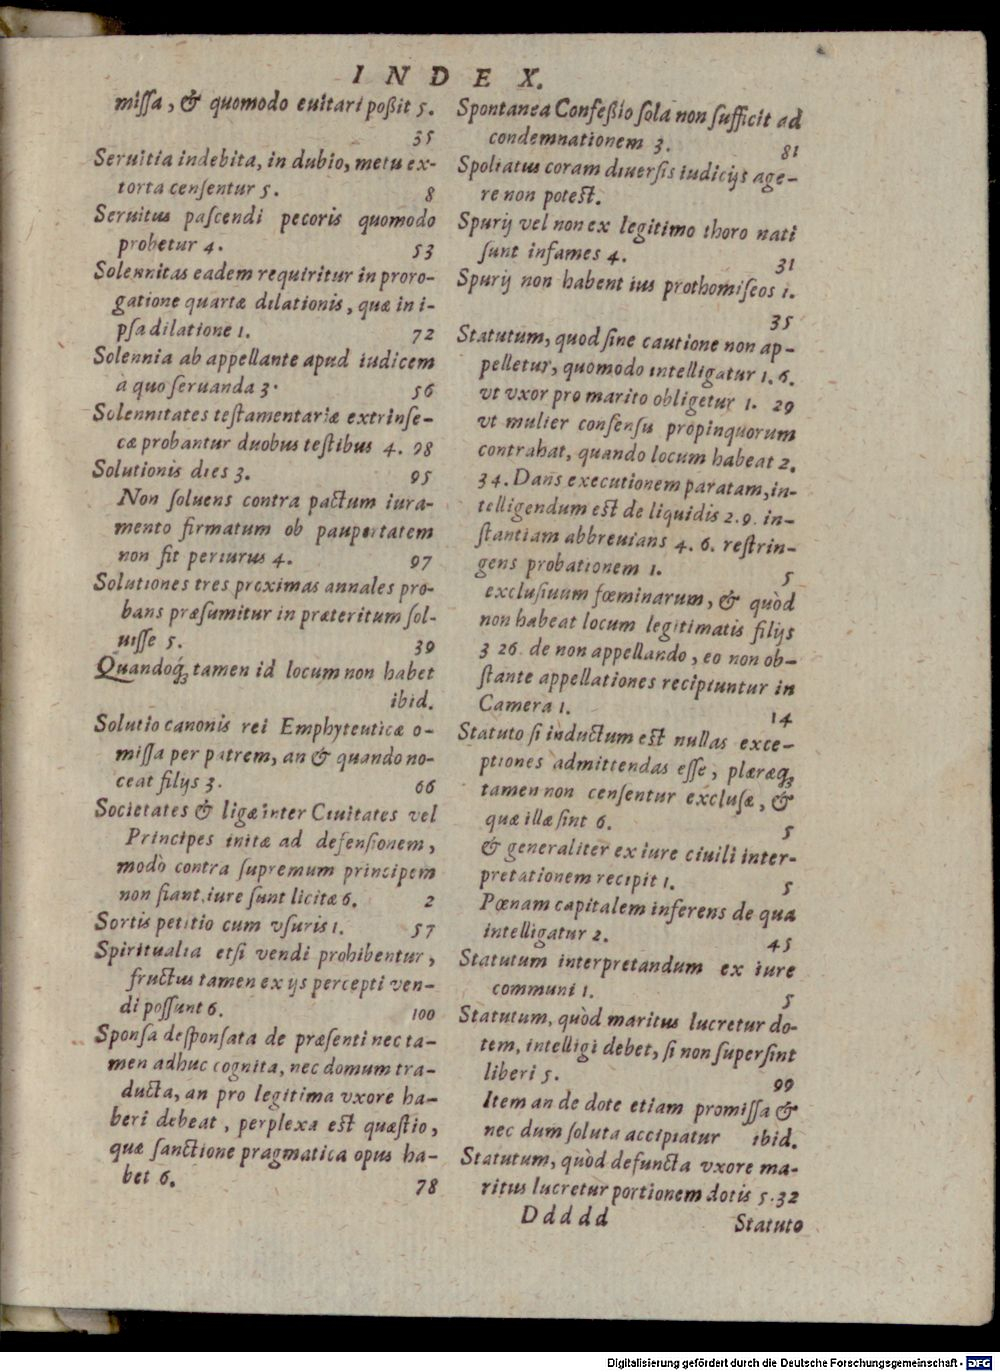 INDEX.
missa, & quomodo euitari poßit 5.
35
Seruitia indebita, in dubio, metu ex-
torta censentur 5. 8
Seruitus pascendi pecoris quomodo
probetur 4. 53
Solennitas eadem requiritur in proro-
gatione quartæ dilationis, quæ in i-
psa dilatione 1. 72
Solennia ab appellante apud iudicem
à quo seruanda 3. 56
Solennitates testamentariæ extrinse-
cæ probantur duobus testibus 4. 98
Solutionis dies 3. 95
Non soluens contra pactum iura-
mento firmatum ob paupertatem
non fit periurus 4. 97
Solutiones tres proximas annales pro-
bans præsumitur in præteritum sol-
uisse 5. 39
Quandoq́; tamen id locum non habet
ibid.
Solutio canonis rei Emphyteuticæ o-
missa per patrem, an & quando no-
ceat filijs 3. 66
Societates & ligæ inter Ciuitates vel
Principes initæ ad defensionem,
modò contra supremum principem
non fiant, iure sunt licitæ 6. 2
Sortis petitio cum vsuris 1. 57
Spiritualia etsi vendi prohibentur,
fructus tamen ex ijs percepti ven-
di possunt 6. 100
Sponsa desponsata de præsenti nec ta-
men adhuc cognita, nec domum tra-
ducta, an pro legitima vxore ha-
beri debeat, perplexa est quæstio,
quæ sanctione pragmatica opus ha-
bet 6. 78
Spontanea Confeßio sola non sufficit ad
condemnationem 3. 81
Spoliatus coram diuersis iudicijs age-
re non potest.
Spurij vel non ex legitimo thoro nati
sunt infames 4. 31
Spurij non habent ius prothomiseos 1.
35
Statutum, quod sine cautione non ap-
pelletur, quomodo intelligatur 1. 6.
vt vxor pro marito obligetur 1. 29
vt mulier consensu propinquorum
contrahat, quando locum habeat 2.
34. Dans executionem paratam, in-
telligendum est de liquidis 2. 9. in-
stantiam abbreuians 4. 6. restrin-
gens probationem 1. 5
exclusiuum fœminarum, & quòd
non habeat locum legitimatis filijs
3 26. de non appellando, eo non ob-
stante appellationes recipiuntur in
Camera 1. 14
Statuto si inductum est nullas exce-
ptiones admittendas esse, plæræq́;
tamen non censentur exclusæ, &
quæ illæ sint 6. 5
& generaliter ex iure ciuili inter-
pretationem recipit 1. 5
Pœnam capitalem inferens de qua
intelligatur 2. 45
Statutum interpretandum ex iure
communi 1. 5
Statutum, quòd maritus lucretur do-
tem, intelligi debet, si non supersint
liberi 5. 99
Item an de dote etiam promissa &
nec dum soluta accipiatur ibid.
Statutum, quòd defuncta vxore ma-
ritus lucretur portionem dotis 5. 32
Ddddd Statuto
Digitalisierung gefördert durch die Deutsche Forschungsgemeinschaft - DFG